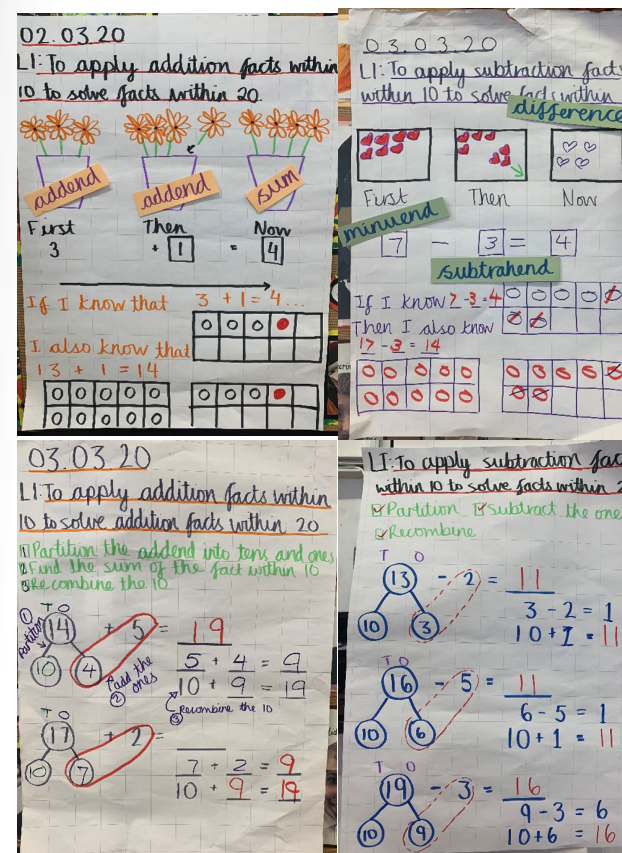 02.03.20
LI: To apply addition facts within
10 to solve facts within 20.
addend addend sum
First Then Now
3 + 1 = 4
If I know that 3 + 1 = 4...
I also know that
13 + 1 = 14
03.03.20
LI: To apply subtraction facts
within 10 to solve facts within
difference
First Then Now
minuend
7 - 3 = 4
subtrahend
If I know 7 - 3 = 4
Then I also know
17 - 3 = 14
03.03.20
LI: To apply addition facts within
10 to solve addition facts within 20
1 Partition the addend into tens and ones
2 Find the sum of the fact within 10
3 Recombine the 10
① T O
Partition
14 + 5 = 19
10 4
② add the
ones
5 + 4 = 9
10 + 9 = 19
③ Recombine the 10
T O
17 + 2 =
10 7
7 + 2 = 9
10 + 9 = 19
LI: To apply subtraction fac
within 10 to solve facts within 2
Partition Subtract the one
Recombine
T O
13 - 2 = 11
10 3
3 - 2 = 1
10 + 1 = 11
T O
16 - 5 = 11
10 6
6 - 5 = 1
10 + 1 = 11
T O
19 - 3 = 16
10 9
9 - 3 = 6
10 + 6 = 16